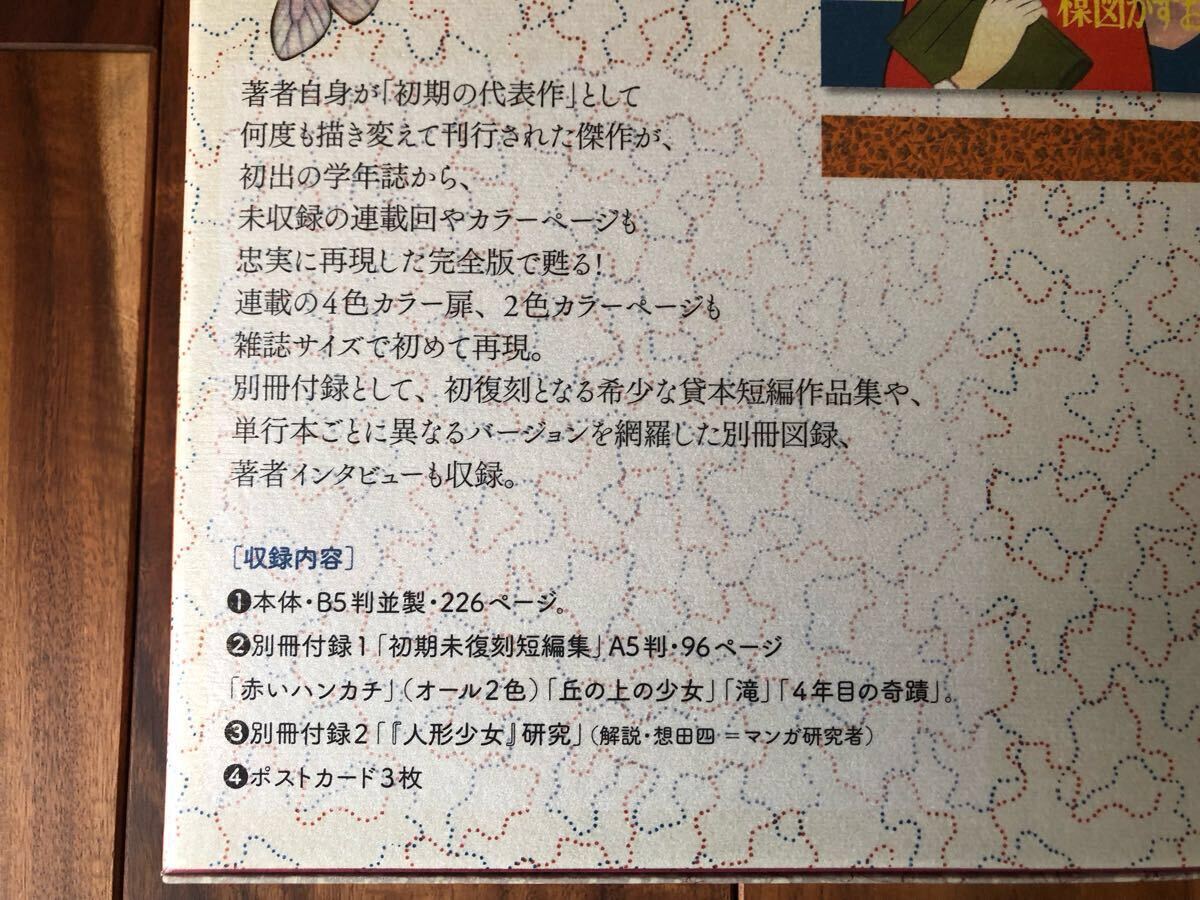 楳図かずお
著者自身が「初期の代表作」として
何度も描き変えて刊行された傑作が、
初出の学年誌から、
未収録の連載回やカラーページも
忠実に再現した完全版で甦る!
連載の4色カラー扉、2色カラーページも
雑誌サイズで初めて再現。
別冊付録として、初復刻となる希少な貸本短編作品集や、
単行本ごとに異なるバージョンを網羅した別冊図録、
著者インタビューも収録。
［収録内容］
❶本体・B5判並製・226ページ。
❷別冊付録1「初期未復刻短編集」A5判・96ページ
「赤いハンカチ」(オール2色)「丘の上の少女」「滝」「4年目の奇蹟」。
❸別冊付録2「『人形少女』研究」(解説・想田四＝マンガ研究者)
❹ポストカード3枚